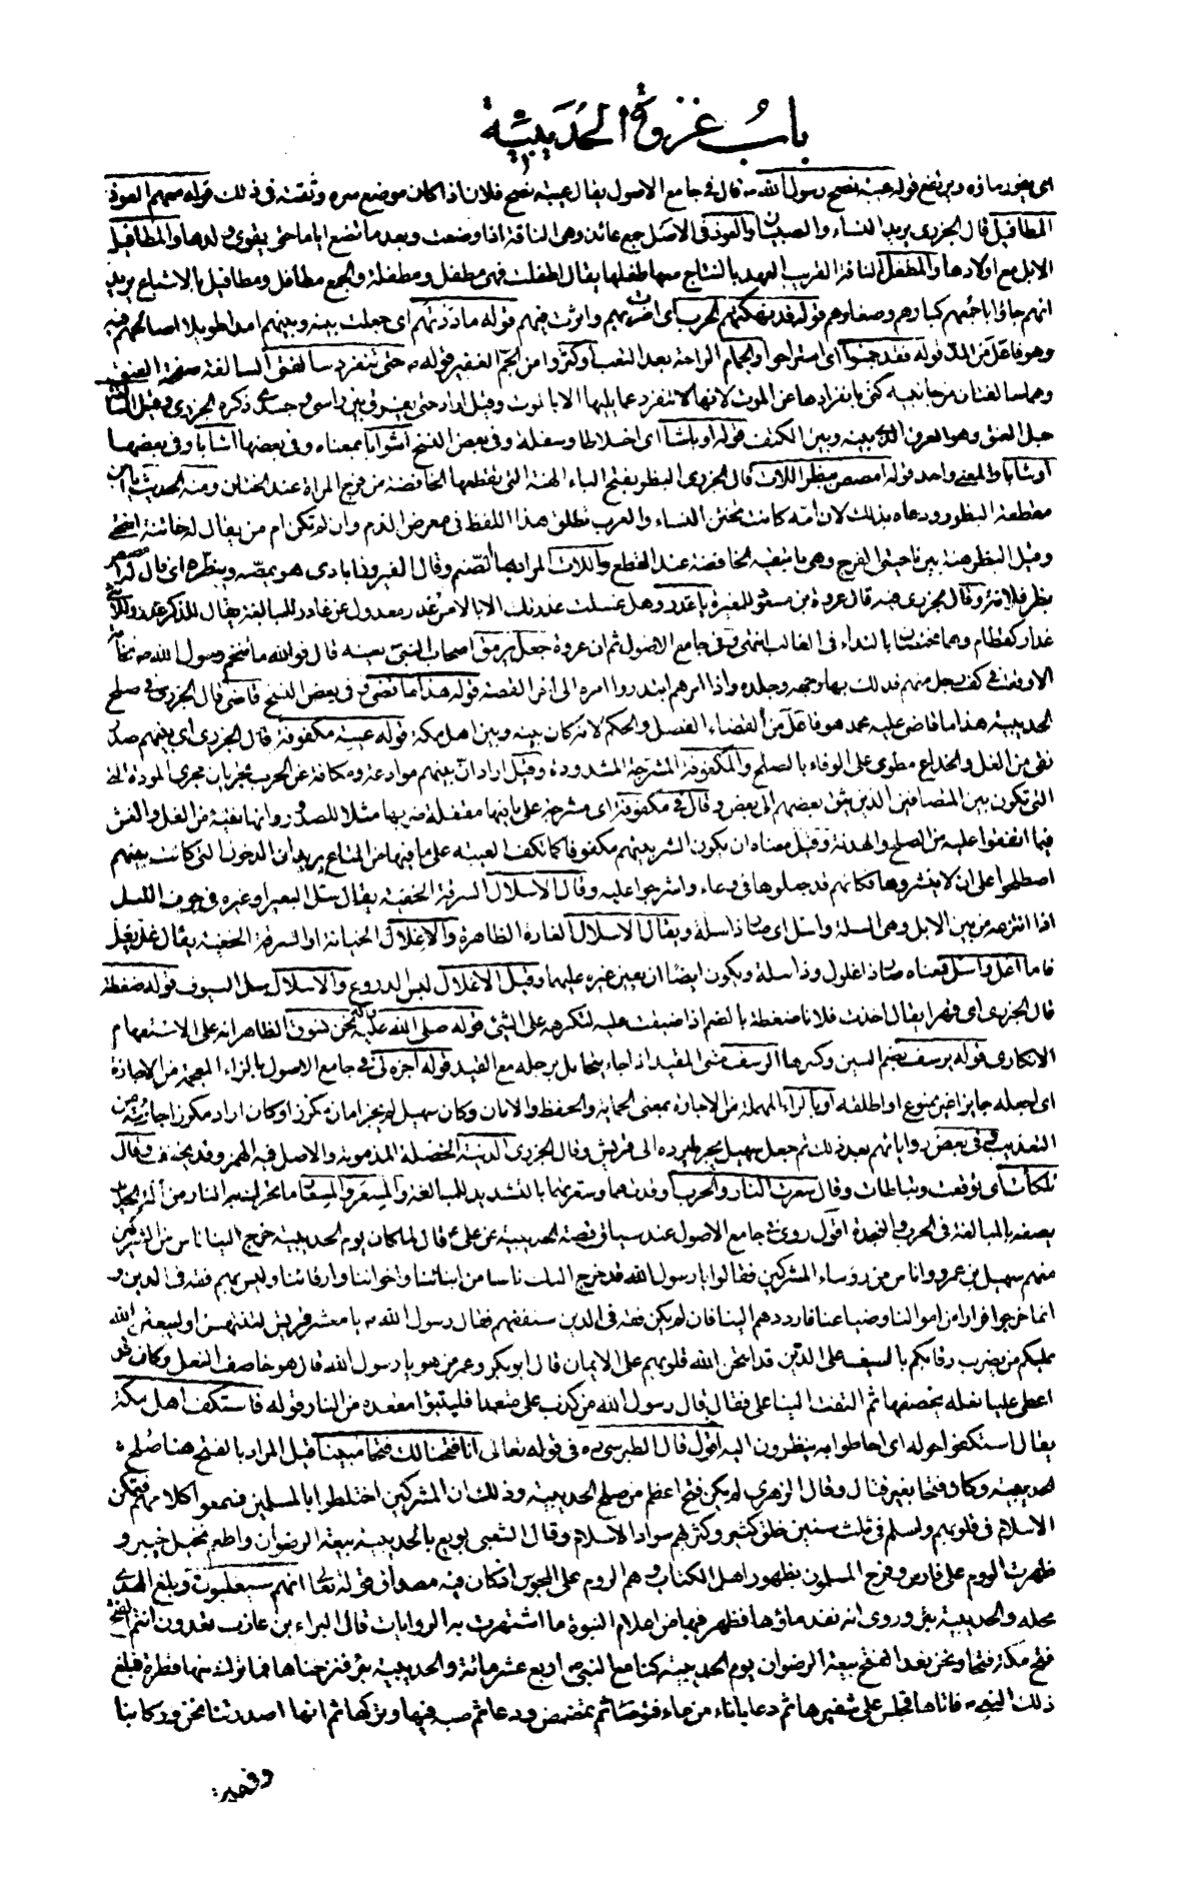 باب غزوة الحديبية
اى يفور ماؤه ويرتفع قوله عيبة نصح رسول الله ص قال فى جامع الاصول يقال عيبة نصح فلان اذا كان موضع سره وثقته فى ذلك قوله معهم العوذ
المطافيل قال الجزرى يريد النساء والصبيان والعوذ فى الاصل جمع عائذ وهى الناقة اذا وضعت وبعد ما تضع اياما حتى يقوى ولدها والمطافيل
الابل مع اولادها والمطفل الناقة القريب العهد بالنتاج معها طفلها يقال اطفلت فهى مطفل ومطفلة والجمع مطافل ومطافيل بالاشباع يريد
انهم جاؤا باجمعهم كبارهم وصغارهم قوله قد نهكتهم الحرب اى اضرت بهم واثرت فيهم قوله ماددتهم اى جعلت بينه وبينهم امدا طويلا اصالحهم فيه
وهو فاعل من المد قوله فقد جموا اى استراحوا والجمام الراحة بعد التعب وكثروا من الجم الغفير قوله ص حتى تنفرد سالفتى السالفة صفحة العنق
وهما سالفتان من جانبيه كنى بانفرادها عن الموت لانها لا تنفرد عما يليها الا بالموت وقيل اراد حتى يفرق بين راسى وجسدى ذكره الجزرى وقيل السالفة
حبل العنق وهو العرق الذى بينه وبين الكتف قوله اوباشا اى اخلاطا وسفلة وفى بعض النسخ اشوابا بمعناه وفى بعضها اشابا وفى بعضها
اوشابا والمعنى واحد قوله امصص بظر اللات قال الجزرى البظر بفتح الباء الهنة التى تقطعها الخافضة من فرج المراة عند الختان ومنه الحديث يا ابن
مقطعة البظور ودعاه بذلك لان امه كانت تختن النساء والعرب تطلق هذا اللفظ فى معرض الذم وان لم تكن ام من يقال له خاتنة انتهى
وقيل البظر هنة بين ناحيتى الفرج وهى ما تبقيه الخافضة عند القطع واللات المراد بها الصنم وقال الفيروزابادى هو يمصه ويبظره اى قال له امصص
بظر فلانة وقال الجزرى فيه قال عروة بن مسعود للمغيرة يا غدر وهل غسلت غدرتك الا بالامس غدر معدول عن غادر للمبالغة يقال للذكر غدر وللانثى
غدار كقطام وهما مختصان بالنداء فى الغالب انتهى وفى جامع الاصول ثم ان عروة جعل يرمق اصحاب النبى بعينه قال فوالله ما تنخم رسول الله ص نخامة
الا وقعت فى كف رجل منهم فدلك بها وجهه وجلده واذا امرهم ابتدروا امره الى اخر القصة قوله هذا ما قضى وفى بعض النسخ قاضى قال الجزرى فى صلح
الحديبية هذا ما قاضى عليه محمد هو فاعل من القضاء الفصل والحكم لانه كان بينه وبين اهل مكة قوله عيبة مكفوفة قال الجزرى اى بينهم صدر
نقى من الغل والخداع مطوى على الوفاء بالصلح والمكفوفة المشرجة المشدودة وقيل اراد ان بينهم موادعة ومكافة عن الحرب تجريان مجرى المودة التى
التى تكون بين المتصافين الذين يثق بعضهم الى بعض وقال فى مكفوفة اى مشرجة على ما فيها مقفلة ضربها مثلا للصدور وانها نقية من الغل والغش
فيما اتفقوا عليه من الصلح والهدنة وقيل معناه ان يكون الشر بينهم مكفوفا كما تكف العيبة على ما فيها من المتاع يريد ان الذحول التى كانت بينهم
اصطلحوا على ان لا ينشروها فكانهم قد جعلوها فى وعاء واشرجوا عليه وقال الاسلال السرقة الخفية يقال سل البعير او غيره فى جوف الليل
اذا انتزعه من بين الابل وهى السلة واسل اى صار ذا سلة ويقال الاسلال الغارة الظاهرة والاغلال الخيانة او السرقة الخفية يقال غل يغل
فاما اغل واسل فمعناه صار ذا غلول وذا سلة ويكون ايضا ان يعين غيره عليهما وقيل الاغلال لبس الدروع والاسلال سل السيوف قوله ضغطة
قال الجزرى اى قهرا يقال اخذت فلانا ضغطة بالضم اذا ضيقت عليه لتكرهه على الشئ قوله صلى الله عليه واله نحن نسوق الظاهر انه على الاستفهام
الانكارى قوله يرسف بضم السين وكسرها الرسف مشى المقيد اذا جاء يتحامل برجله مع القيد قوله اجزه لى فى جامع الاصول بالزاء المعجمة من الاجازة
اى اجعله جايزا غير ممنوع او اطلقه او بالراء المهملة من الاجارة بمعنى الحماية والحفظ والامان وكان سهيل لم يجز امان مكرز او كان اراد مكرز اجارته من
التعذيب وفى بعض رواياتهم بعد ذلك ثم جعل سهيل يجره ليرده الى قريش وقال الجزرى الدنية الخصلة المذمومة والاصل فيه الهمز وقد يخفف وقال
تلكات اى توقفت وتباطات وقال سعرت النار والحرب اوقدتهما وسعرتهما بالتشديد للمبالغة والمسعر والمسعار ما تحرك به النار من الة الحديد
يصفه بالمبالغة فى الحرب والنجدة اقول روى فى جامع الاصول عند سياق قصة الحديبية عن على ع قال لما كان يوم الحديبية خرج الينا ناس من المشركين
منهم سهيل بن عمرو واناس من رؤساء المشركين فقالوا يا رسول الله قد خرج اليك ناس من ابنائنا واخواننا وارقائنا وليس بهم فقه فى الدين و
انما خرجوا فرارا من اموالنا وضياعنا فارددهم الينا فان لم يكن فقه فى الدين سنفقههم فقال رسول الله ص يا معشر قريش لتنتهن او ليبعثن الله
عليكم من يضرب رقابكم بالسيف على الدين قد امتحن الله قلوبهم على الايمان قال ابو بكر وعمر من هو يا رسول الله قال هو خاصف النعل وكان قد
اعطى عليا نعله يخصفها ثم التفت الينا على فقال قال رسول الله من كذب على متعمدا فليتبوأ مقعده من النار قوله فاستكف اهل مكة
يقال استكفوا حوله اى احاطوا به ينظرون اليه اقول قال الطبرسى ره فى قوله تعالى انا فتحنا لك فتحا مبينا قيل المراد بالفتح هنا صلح
الحديبية وكان فتحا بغير قتال وقال الزهرى لم يكن فتح اعظم من صلح الحديبية وذلك ان المشركين اختلطوا بالمسلمين فسمعوا كلامهم فتمكن
الاسلام فى قلوبهم واسلم فى ثلث سنين خلق كثير وكثر بهم سواد الاسلام وقال الشعبى بويع بالحديبية بيعة الرضوان واطعم نخيل خيبر و
ظهرت الروم على فارس وفرح المسلمون بظهور اهل الكتاب وهم الروم على المجوس اذ كان فيه مصداق قوله تعالى انهم سيغلبون وبلغ الهدى
محله والحديبية بئر وروى انه نفد ماؤها فظهر فيها من اعلام النبوة ما اشتهرت به الروايات قال البراء بن عازب تعدون انتم الفتح
فتح مكة فتحا ونحن نعد الفتح بيعة الرضوان يوم الحديبية كنا مع النبى ص اربع عشر مائة والحديبية بئر فنزحناها فما نترك منها قطرة فبلغ
ذلك النبى ص فاتاها فجلس على شفيرها ثم دعا باناء من ماء فتوضا ثم تمضمض ودعا ثم صبه فيها وتركها ثم انها اصدرتنا نحن وركابنا
وفى حديث